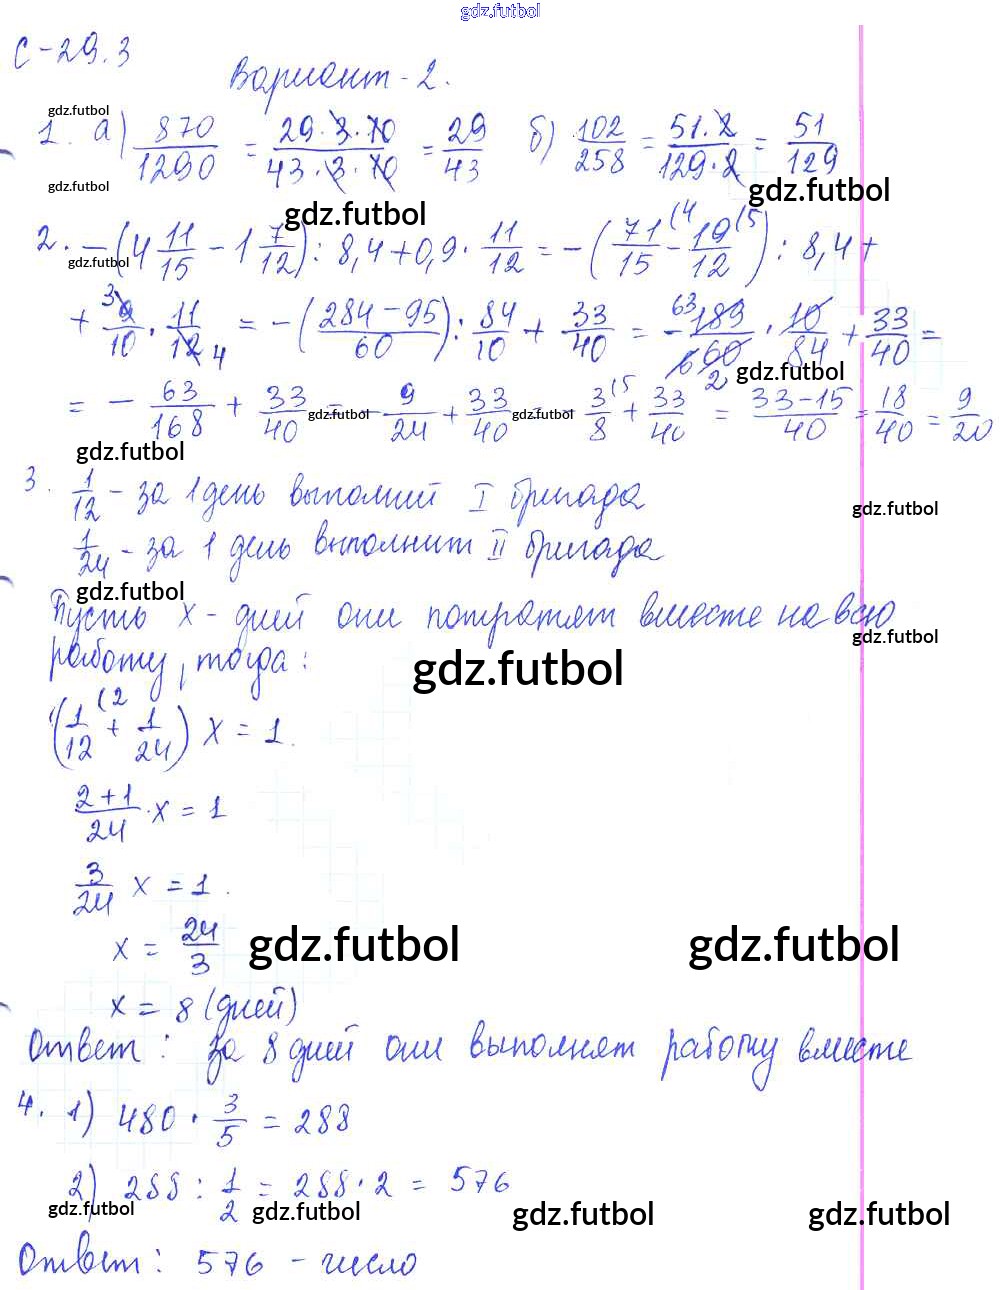 gdz.futbol
С-29.3
Вариант-2.
gdz.futbol
1. а) 870/1290 = 29·3·10/43·3·10 = 29/43 б) 102/258 = 51·2/129·2 = 51/129
gdz.futbol
gdz.futbol gdz.futbol
2. -(4 11/15 - 1 7/12) : 8,4 + 0,9 · 11/12 = -(71/15 (4 - 19/12 (5) : 8,4 +
gdz.futbol
+ 9/10 3 · 11/12 4 = -(284-95/60) : 84/10 + 33/40 = - 189/60 63 6 · 10/84 2 + 33/40 =
gdz.futbol
= - 63/168 + 33/40 gdz.futbol 9/24 + 33/40 gdz.futbol 3/8 (5 + 33/40 = 33-15/40 = 18/40 = 9/20
gdz.futbol
3. 1/12 - за 1 день выполний I бригада
gdz.futbol
1/24 - за 1 день выполнит II бригада
gdz.futbol
Пусть x - дней они потратят вместе на всю
gdz.futbol
работу, тогда:
gdz.futbol
(1/12 (2 + 1/24) x = 1.
2+1/24 · x = 1
3/24 x = 1.
x = 24/3
gdz.futbol gdz.futbol
x = 8 (дней)
Ответ: за 8 дней они выполнят работу вместе
4. 1) 480 · 3/5 = 288
2) 288 : 1/2 = 288 · 2 = 576
gdz.futbol gdz.futbol gdz.futbol gdz.futbol
Ответ: 576 - число